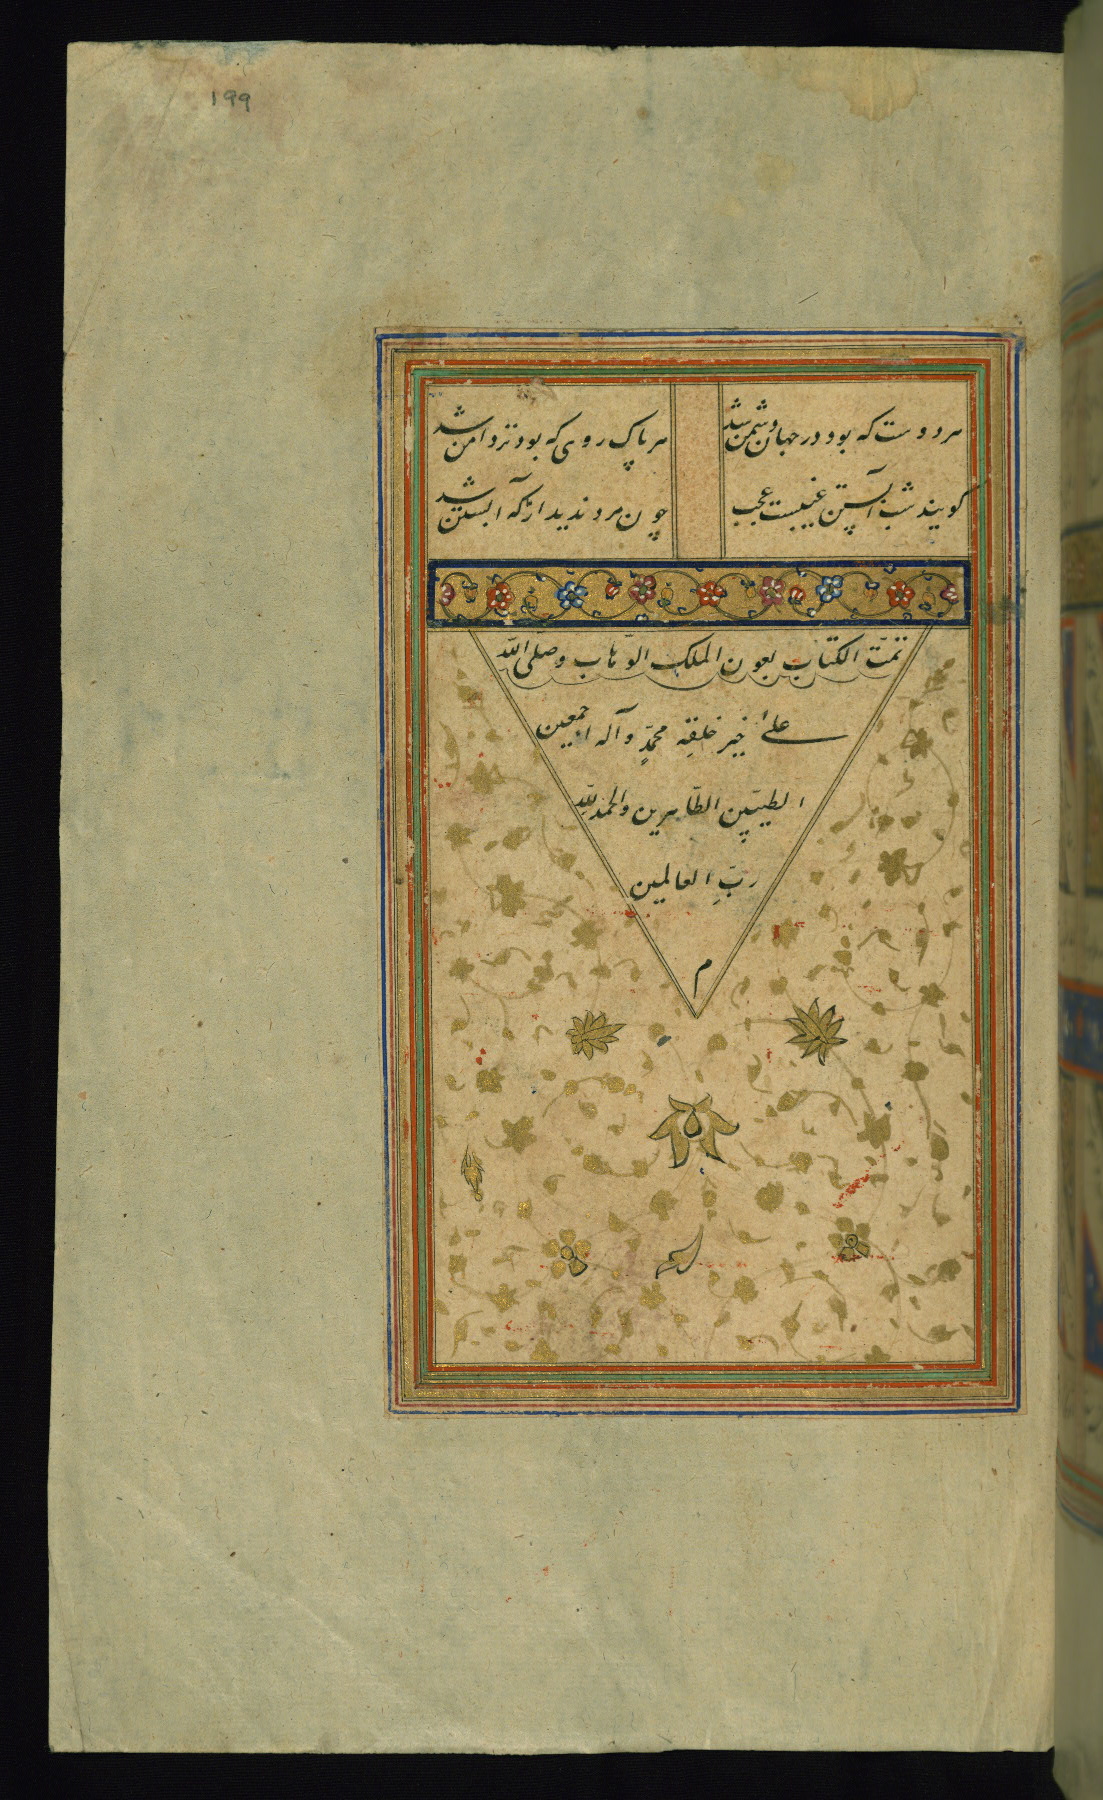 ۱۹۹
هر دوست که بود در جهان دشمن شد
هر پاک روی که بود تردامن شد
گویند شب آبستن غیبست عجب
چون مرد ندید از که آبستن شد
تمّت الکتاب بعون الملک الوهّاب وصلّی اللّه
علی خیر خلقِه محمّدٍ وآله اجمعین
الطیبّین الطّاهرین والحمد للّهِ
ربِّ العالمین
م